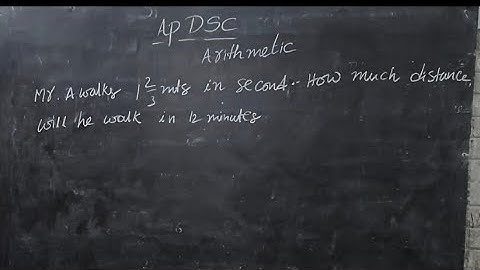 AP DSC
Arithmetic
Mr. A walks 1 2/3 mts in second. How much distance
will he walk in 12 minutes